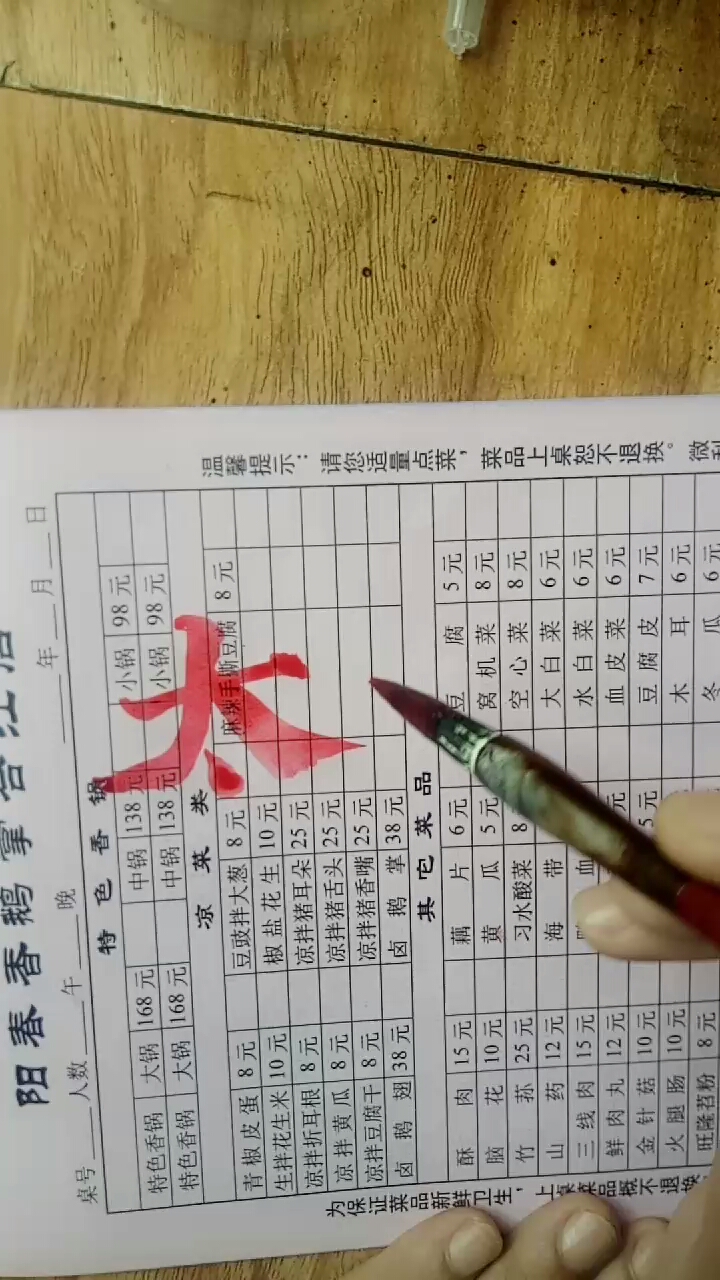 阳春香鹅掌
桌号 人数 午 晚 年 月 日
特色香锅
特色香锅 大锅 168元 中锅 138元 小锅 98元
特色香锅 大锅 168元 中锅 138元 小锅 98元
凉菜类
青椒皮蛋 8元 豆豉拌大葱 8元 麻辣手撕豆腐 8元
生拌花生米 10元 椒盐花生 10元
凉拌折耳根 8元 凉拌猪耳朵 25元
凉拌黄瓜 8元 凉拌猪舌头 25元
凉拌豆腐干 8元 凉拌猪香嘴 25元
卤鹅翅 38元 卤鹅掌 38元
其它菜品
酥肉 15元 藕片 6元 豆腐 5元
脑花 10元 黄瓜 5元 窝机菜 8元
竹荪 25元 习水酸菜 8 空心菜 8元
山药 12元 海带 大白菜 6元
三线肉 15元 血 水白菜 6元
鲜肉丸 12元 元 血皮菜 6元
金针菇 10元 5元 豆腐皮 7元
火腿肠 10元 木耳 6元
旺隆苕粉 8元 冬瓜 6元
温馨提示：请您适量点菜，菜品上桌恕不退换。微利
为保证菜品新鲜卫生，上桌菜品概不退换